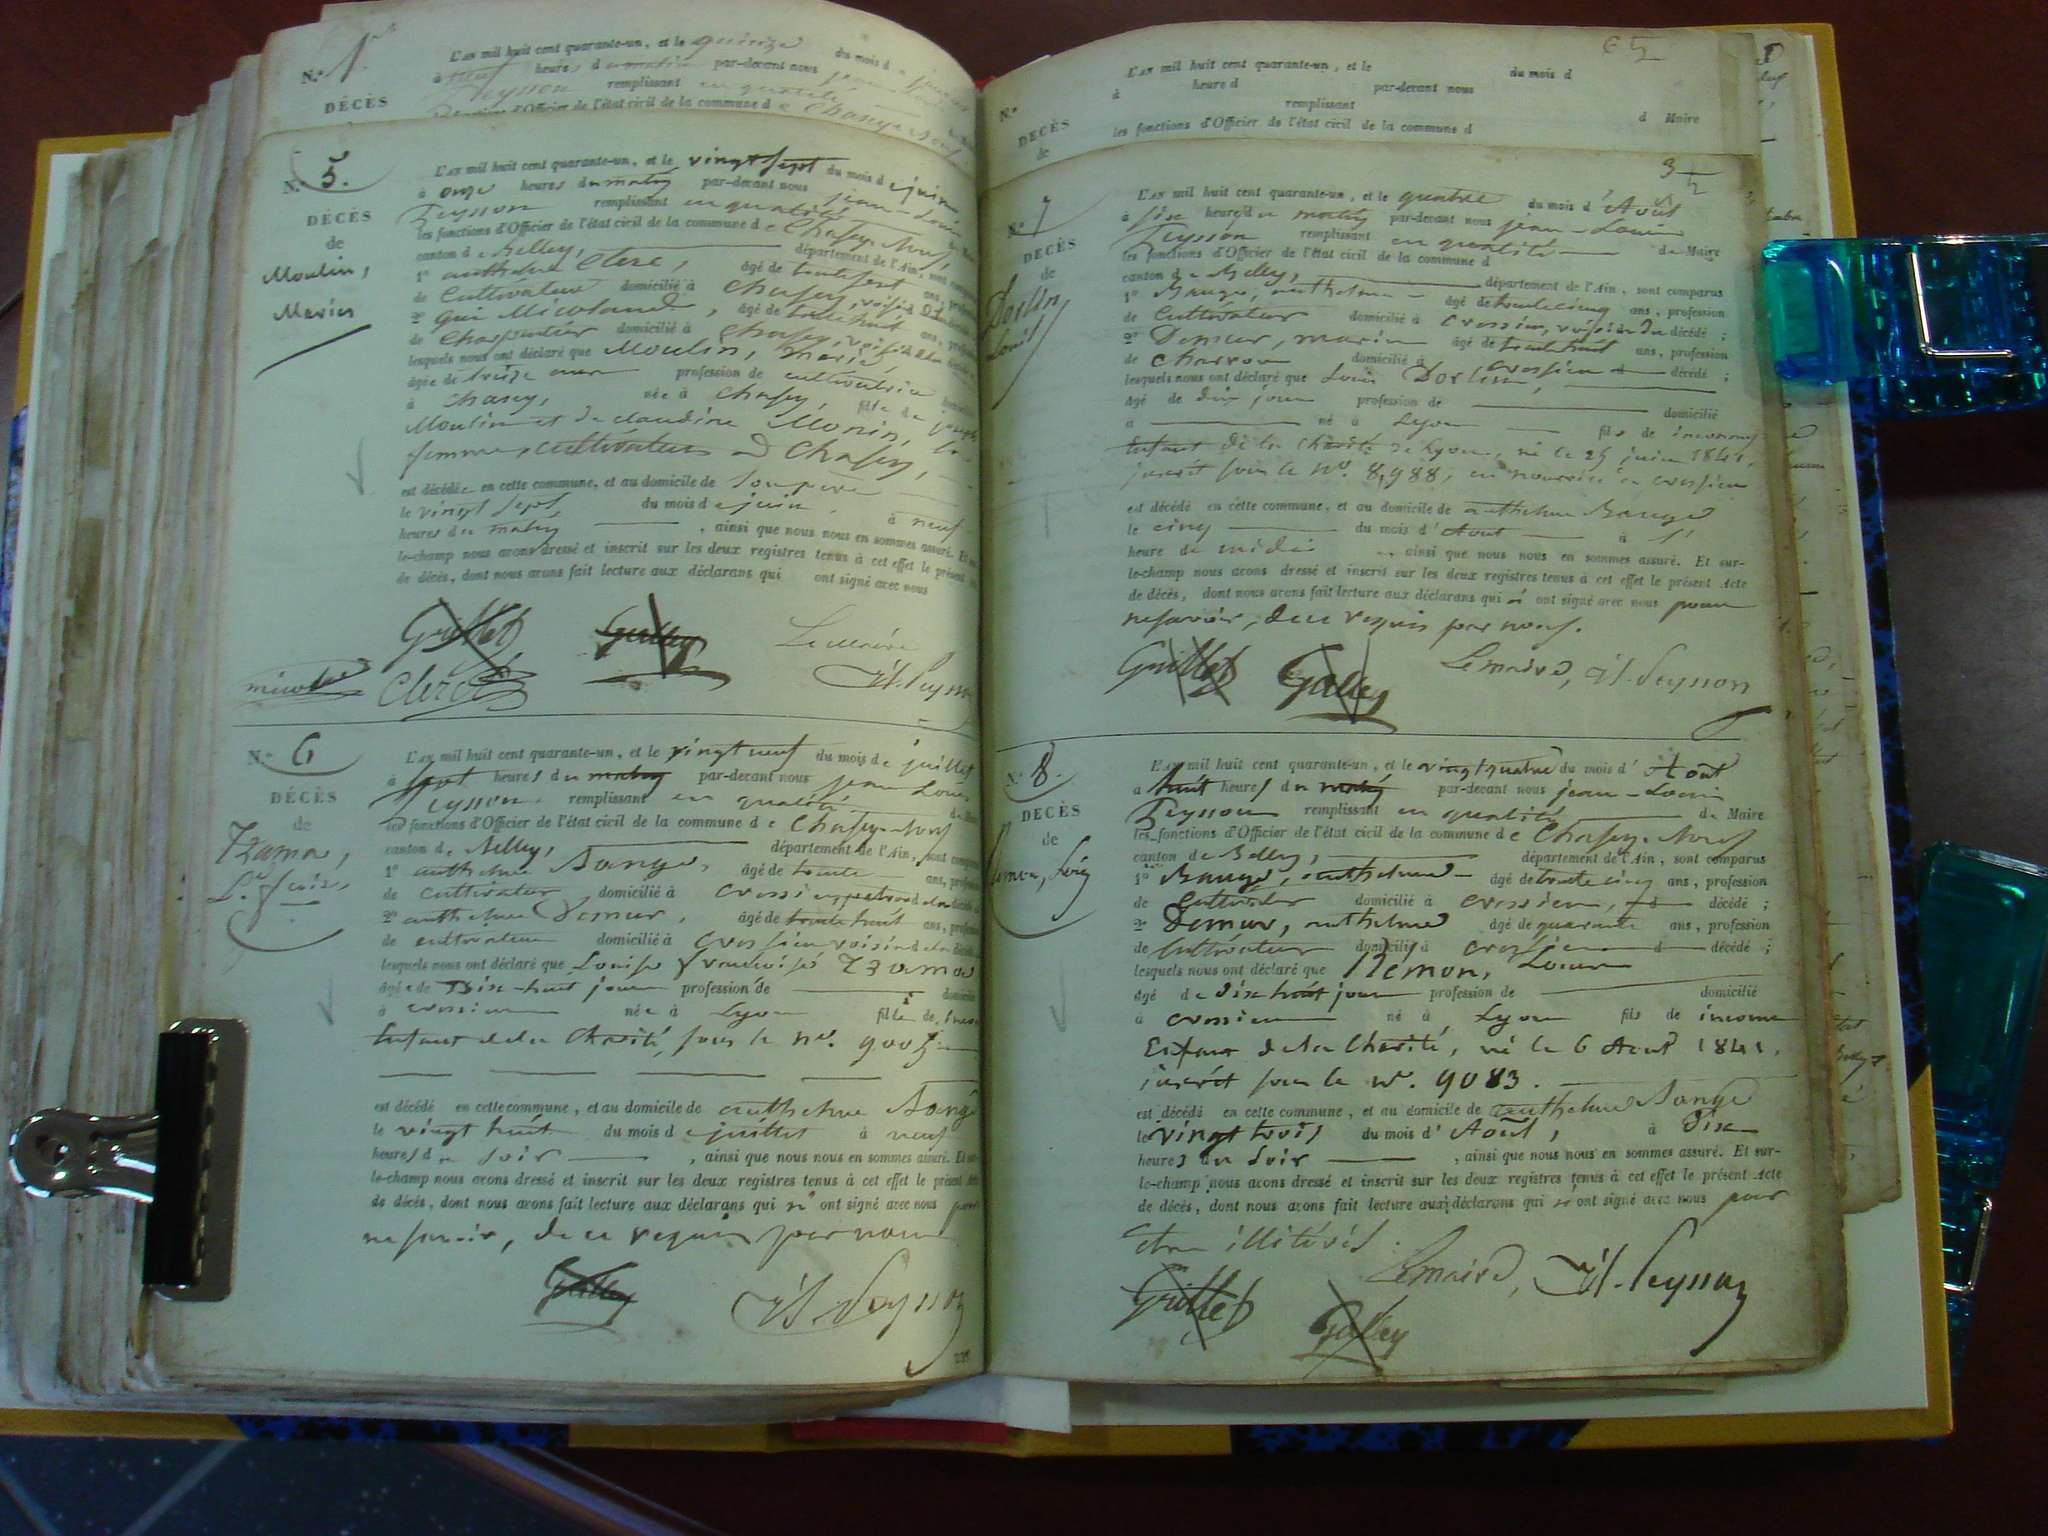 N.o 1.er
L'an mil huit cent quarante-un, et le quinze du mois d
à neuf heures du matin par-devant nous
Teysson remplissant en qualité
DÉCÈS
d'Officier de l'état civil de la commune d
N.o 5.
DÉCÈS
de
Moulin,
L'an mil huit cent quarante-un, et le vingt sept du mois de juin
à onze heures du matin par-devant nous jean-Louis
Teysson remplissant en qualité
les fonctions d'Officier de l'état civil de la commune de Chasey-Neuf,
canton de Belley, département de l'Ain, sont
1o anthelme Clerc, âgé de trente sept ans,
de Cultivateur domicilié à Chasey, voisin
2o âgé de trente huit ans,
de Charpentier domicilié à Chasey, voisin
lesquels nous ont déclaré que Moulin, Marie,
âgée de treize ans profession de cultivatrice
à Chasey, née à Chasey, fille de joseph
Moulin et de claudine Monin, sa
femme, cultivateurs à Chasey,
est décédée en cette commune, et au domicile de son père
le vingt sept du mois de juin, à neuf
heures du matin , ainsi que nous nous en sommes assuré. Et
le-champ nous avons dressé et inscrit sur les deux registres tenus à cet effet le présent
de décès, dont nous avons fait lecture aux déclarans qui ont signé avec nous
Guillet Galley Le Maire
Clerc JL. Teysson
N.o 6
DÉCÈS
de
Tzama,
L'an mil huit cent quarante-un, et le vingt neuf du mois de juillet
à sept heures du matin par-devant nous jean Louis
Teysson remplissant en qualité
les fonctions d'Officier de l'état civil de la commune de Chasey-Neuf
canton de Belley, département de l'Ain, sont
1o anthelme Bange, âgé de trente ans,
de cultivateur domicilié à
2o anthelme Demur, âgé de trente huit ans,
de cultivateur domicilié à crossieu voisin
lesquels nous ont déclaré que Louise françoise Tzama
âgée de Dix-huit jours profession de
à crossieu née à Lyon fille de
Enfant de la Charité, sous le no. 9005
est décédé en cette commune, et au domicile de anthelme Bange
le vingt huit du mois de juillet à neuf
heures du soir , ainsi que nous nous en sommes assuré. Et
le-champ nous avons dressé et inscrit sur les deux registres tenus à cet effet le présent Acte
de décès, dont nous avons fait lecture aux déclarans qui n' ont signé avec nous pour
ne savoir, de ce requis par nous
Galley JL. Teysson
N.o
DÉCÈS
de
L'an mil huit cent quarante-un, et le du mois d
à heure d par-devant nous
remplissant d Maire
les fonctions d'Officier de l'état civil de la commune d
N.o 7
DÉCÈS
de
Dorlin,
Louis
L'an mil huit cent quarante-un, et le quatre du mois d'Août
à six heures du matin par-devant nous jean-Louis
Teysson remplissant en qualité de Maire
les fonctions d'Officier de l'état civil de la commune d
canton de Belley, département de l'Ain, sont comparus
1o Bange, anthelme âgé de trente cinq ans, profession
de Cultivateur domicilié à crossieu, voisin du décédé ;
2o Demur, âgé de trente huit ans, profession
de charron domicilié à crossieu d décédé ;
lesquels nous ont déclaré que Louis Dorlin,
âgé de jours profession de domicilié
à né à Lyon fils de inconnus
Enfant de la Charité de Lyon, né le 25 juin 1841,
inscrit sous le No. 8,988, en nourrice à crossieu
est décédé en cette commune, et au domicile de anthelme Bange
le cinq du mois d'Août à
heure de midi , ainsi que nous nous en sommes assuré. Et sur-
le-champ nous avons dressé et inscrit sur les deux registres tenus à cet effet le présent Acte
de décès, dont nous avons fait lecture aux déclarans qui n' ont signé avec nous pour
ne savoir, de ce requis par nous.
Guillet Galley Le maire, JL. Teysson
N.o 8.
DÉCÈS
de
L'an mil huit cent quarante-un, et le vingt quatre du mois d'Août
à huit heures du matin par-devant nous jean-Louis
Teysson remplissant en qualité de Maire
les fonctions d'Officier de l'état civil de la commune de Chasey-Neuf
canton de Belley, département de l'Ain, sont comparus
1o Bange, anthelme âgé de trente cinq ans, profession
de Cultivateur domicilié à crossieu, d décédé ;
2o Demur, anthelme âgé de quarante ans, profession
de Cultivateur domicilié à crossieu d décédé ;
lesquels nous ont déclaré que Némon,
âgé de dix huit jours profession de domicilié
à crossieu né à Lyon fils de inconnu
Enfant de la Charité, né le 6 Août 1841,
inscrit sous le no. 9083.
est décédé en cette commune, et au domicile de anthelme Bange
le vingt trois du mois d'Août, à Dix
heures du soir , ainsi que nous nous en sommes assuré. Et sur-
le-champ nous avons dressé et inscrit sur les deux registres tenus à cet effet le présent Acte
de décès, dont nous avons fait lecture aux déclarans qui n' ont signé avec nous pour
être illitérés.
Le maire, JL. Teysson
Guillet Galley